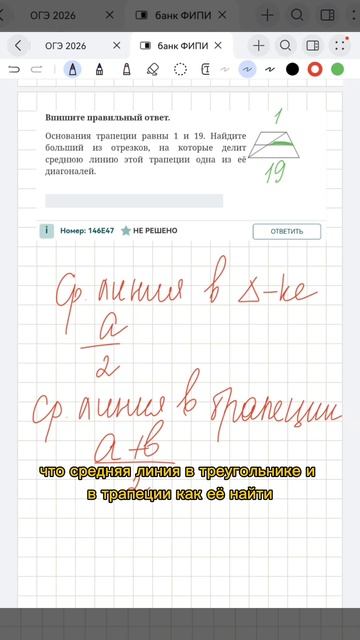 ОГЭ 2026 × банк ФИПИ ×
ОГЭ 2026 × банк ФИПИ ×
Впишите правильный ответ.
Основания трапеции равны 1 и 19. Найдите
больший из отрезков, на которые делит
среднюю линию этой трапеции одна из её
диагоналей.
1
19
i Номер: 146E47 ★ НЕ РЕШЕНО ОТВЕТИТЬ
Ср. линия в Δ-ке
a
2
ср. линия в трапеции
a+b
2
что средняя линия в треугольнике и
в трапеции как её найти